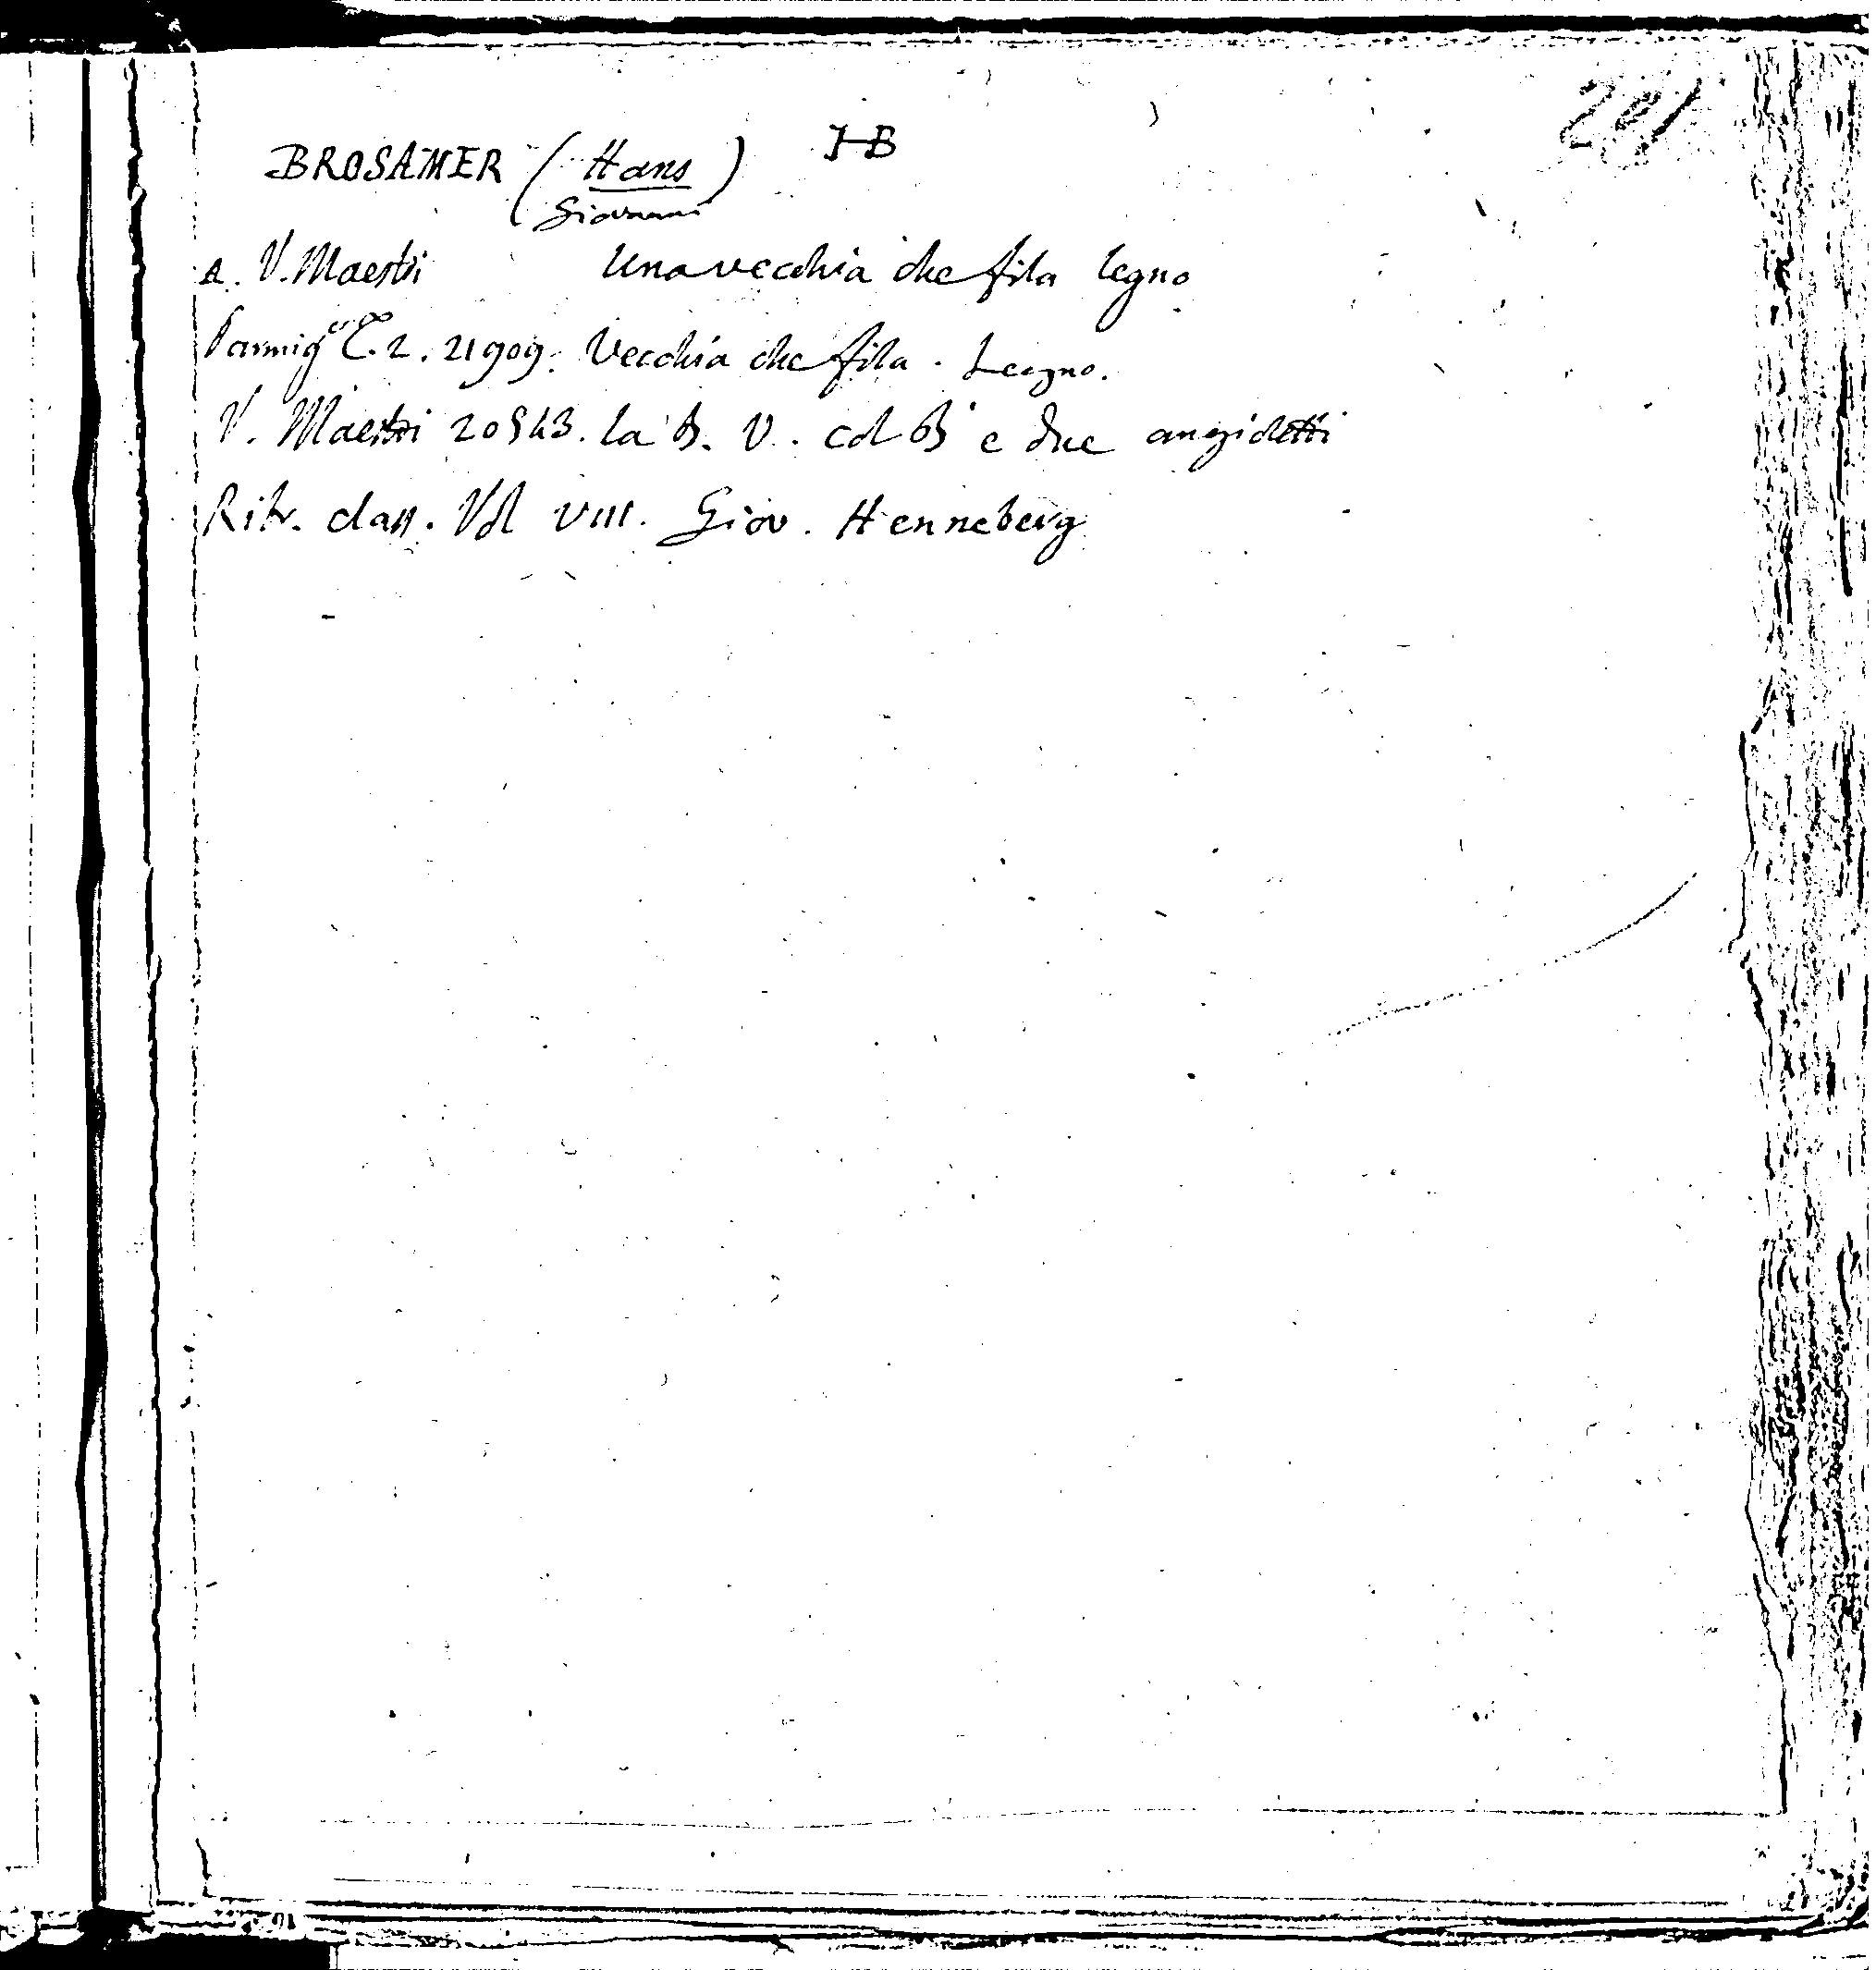 201
BROSAMER (Hans) HB
Giovanni
a. V. Maestri Una vecchia che fila legno
Parmig. C. 2. 21909. Vecchia che fila. Legno.
V. Maestri 20543. la B. V. col B e due angioletti
Ritr. class. Vol VIII. Giov. Henneberg